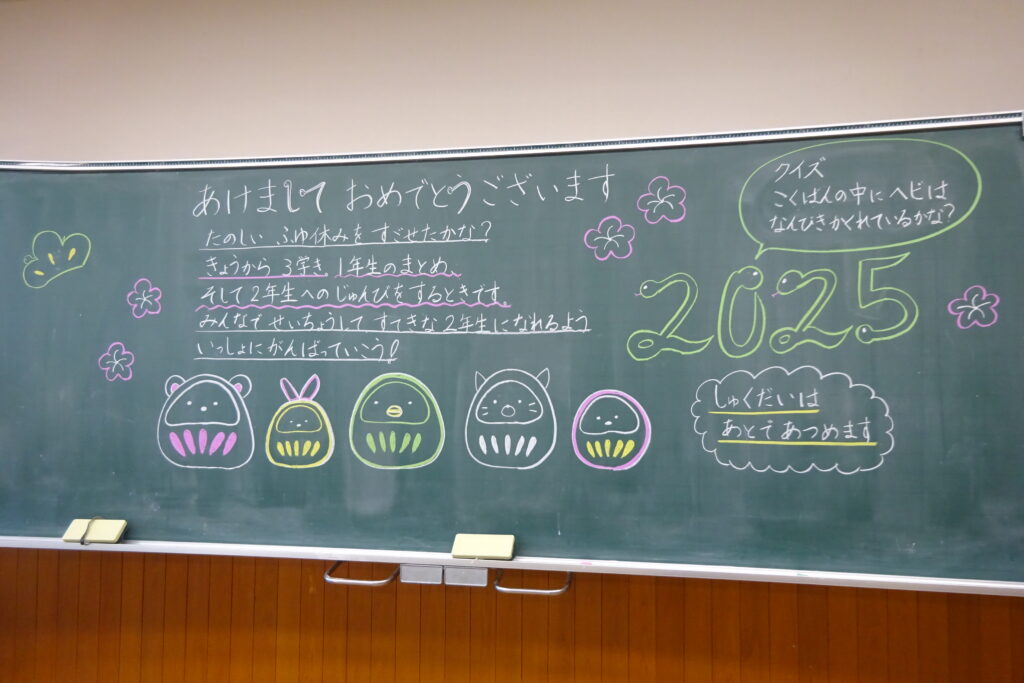 あけまして おめでとうございます
たのしい ふゆ休みを すごせたかな?
きょうから 3学き、1年生のまとめ、
そして2年生へのじゅんびをするときです。
みんなで せいちょうして すてきな2年生になれるよう
いっしょにがんばっていこう!
クイズ
こくばんの中に ヘビは
なんびきかくれているかな?
2025
しゅくだいは
あとで あつめます